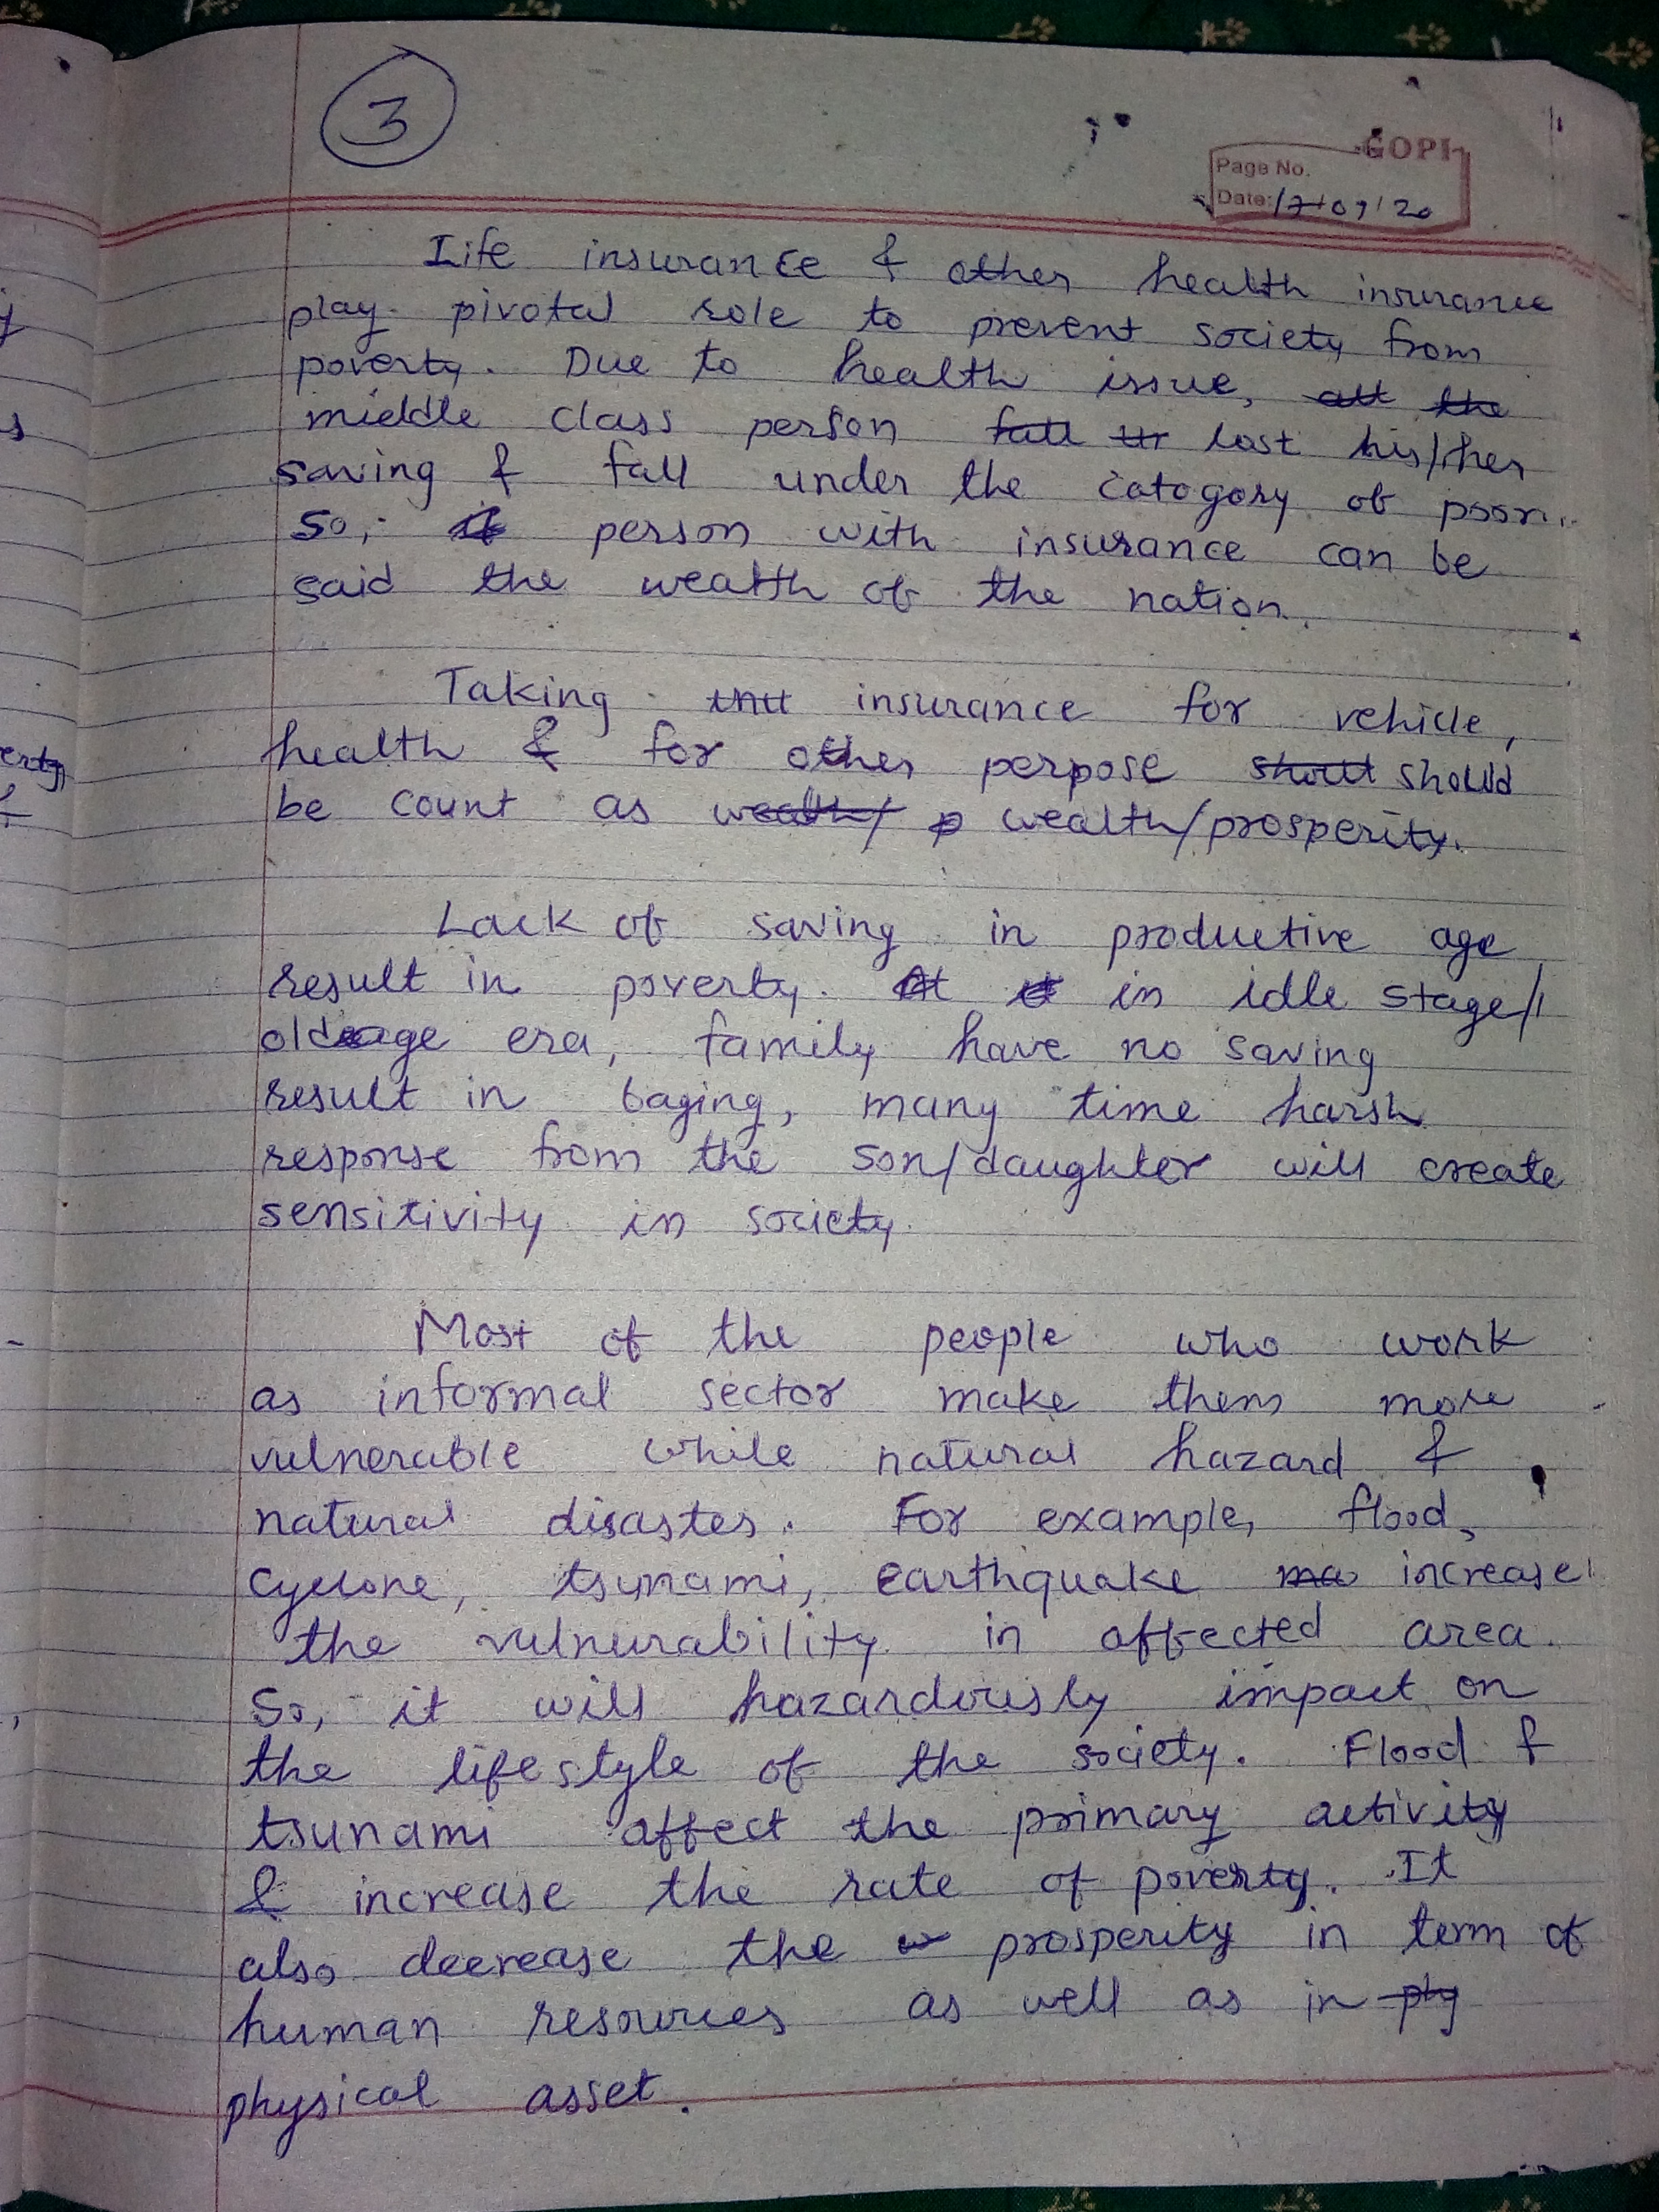 3
GOPI
Page No.
Date: 17/09/20
Life insurance & other health insurance
play pivotal role to prevent society from
poverty. Due to health issue,
middle class person lost his/her
saving & fall under the catogory of poor.
So, person with insurance can be
said the wealth of the nation.
Taking insurance for vehicle,
health & for other perpose should
be count as wealth/prosperity.
Lack of saving in productive age
result in poverty. in idle stage/
oldage era, family have no saving
result in baging, many time harsh
response from the son/daughter will create
sensitivity in society.
Most of the people who work
as informal sector make them more
vulnerable while natural hazard &
natural disaster. For example, flood,
cyclone, tsunami, earthquake increase
the vulnurability in affected area.
So, it will hazardously impact on
the lifestyle of the society. Flood &
tsunami affect the primary activity
& increase the rate of poverty. It
also decrease the prosperity in term of
human resources as well as in
physical asset.